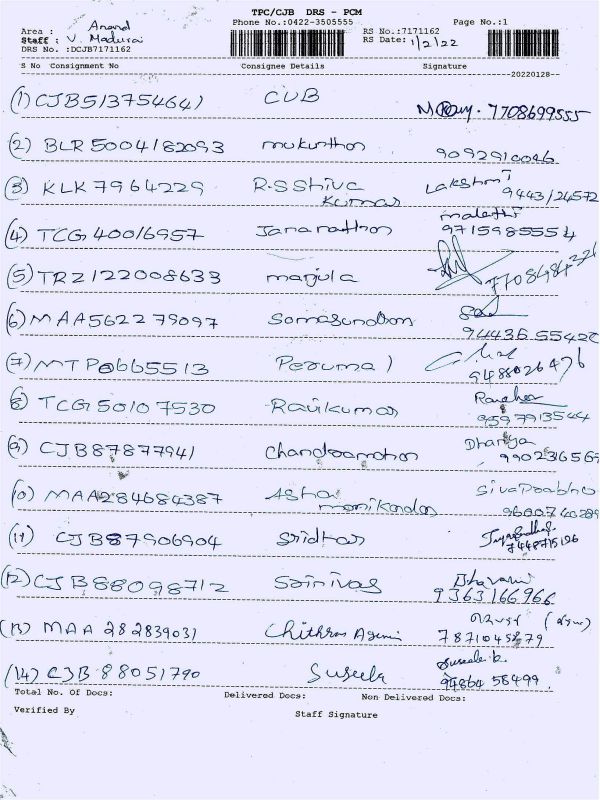 TPC/CJB DRS - PCM
Area : Anand Phone No.:0422-3505555 Page No.:1
Staff : V. Madurai RS No.:7171162
DRS No. :DCJB7171162 RS Date: 1/2/22
S No Consignment No Consignee Details Signature
20220128--
(1) CJB513754641 CUB 7708699555
(2) BLR5004182093 mukunthan 9092910046
(3) KLK7964229 R.S Shiva Kumar Lakshmi 9443124572
(4) TCG40016957 Janarnathan malathi 9715985554
(5) TRZ122008633 manjula 7708484321
(6) MAA562279097 Somasundram 94436 55420
(7) MTP0665513 Perumal 9488026476
(8) TCG50107530 Ravikumar 9597913544
(9) CJB87877941 Chandramohan Dhanya 990236569
(10) MAA284684387 Asha manikandan Sivaprabhu 9600740289
(11) CJB87906904 Sridhar 7448715126
(12) CJB88098712 Srinivas Bhavani 9363166966
(13) MAA 282839031 Chithras Agenci 7871045279
(14) CJB 88051790 Suseela Suseela k. 94864 58499
Total No. Of Docs: Delivered Docs: Non Delivered Docs:
Verified By Staff Signature